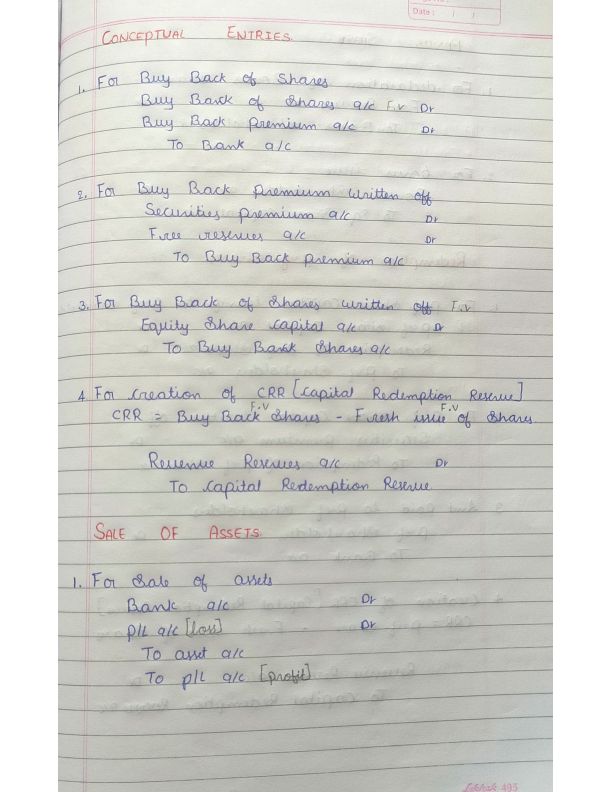 Date : / /
CONCEPTUAL ENTRIES.
1. For Buy Back of Shares
Buy Back of Shares a/c F.V Dr
Buy Back premium a/c Dr
To Bank a/c
2. For Buy Back premium written off
Securities premium a/c Dr
Free reserves a/c Dr
To Buy Back premium a/c
3. For Buy Back of Shares written off F.V
Equity Share capital a/c Dr
To Buy Back Shares a/c
4. For creation of CRR [Capital Redemption Reserve]
CRR = Buy Back F.V Shares - Fresh issue F.V of Shares
Revenue Reserves a/c Dr
To Capital Redemption Reserve
SALE OF ASSETS.
1. For Sale of assets
Bank a/c Dr
P/L a/c [loss] Dr
To asset a/c
To P/L a/c [profit]